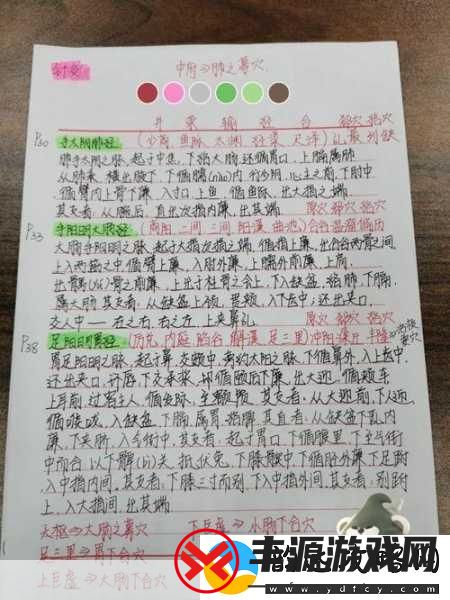 针灸
中府⇒肺之募穴
井 荥 输 经 合 郄穴 络穴
P30 手太阴肺经 (少商 鱼际 太渊 经渠 尺泽) 孔最 列缺
肺手太阴之脉,起于中焦,下络大肠,还循胃口,上膈属肺
从肺系,横出腋下,下循臑(nào)内,行少阴心主之前,下肘中
循臂内上骨下廉,入寸口,上鱼,循鱼际,出大指之端
其支者,从腕后,直出次指内廉,出其端. 原穴 郄穴 络穴
P33 手阳明大肠经 (商阳 二间 三间 阳溪 曲池) 合谷 温溜 偏历
大肠手阳明之脉,起于大指次指之端,循指上廉,出合谷两骨之间
上入两筋之中,循臂上廉,入肘外廉,上臑外前廉,上肩,
出髃骨之前廉,上出于柱骨之会上,下入缺盆,络肺,下膈,
属大肠.其支者:从缺盆上颈,贯颊,入下齿中;还出夹口,
交人中——左之右,右之左,上夹鼻孔 原穴 郄穴 络穴
P38 足阳明胃经 (厉兑 内庭 陷谷 解溪 足三里) 冲阳 梁丘 丰隆
胃足阳明之脉,起于鼻,交頞中,旁约太阳之脉,下循鼻外,入上齿中,
还出夹口,环唇,下交承浆,却循颐后下廉,出大迎,循颊车
上耳前,过客主人,循发际,至额颅,其支者:从大迎前,下人迎,
循喉咙,入缺盆,下膈,属胃,络脾,其直者:从缺盆下乳内
廉,下夹脐,入气街中,其支者:起于胃口,下循腹里,下至气街
中而合,以下髀(bì)关,抵伏兔,下膝髌中,下循胫外廉,下足跗
入中指内间,其支者:下膝三寸而别,下入中指外间,其支者:别跗
上,入大指间,出其端.
天枢⇒大肠之募穴 下巨虚⇒小肠下合穴
足三里⇒胃下合穴
上巨虚⇒大肠下合穴
丰源游戏网
www.ydfcy.com